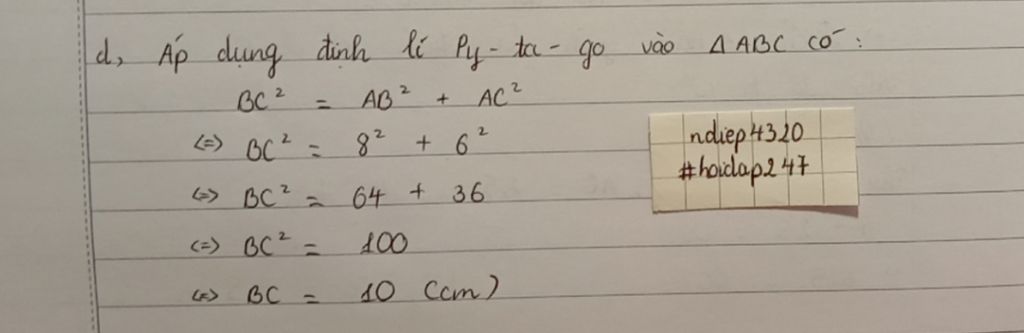 d, Áp dụng định lí Py-ta-go vào Δ ABC có:
BC² = AB² + AC²
(=) BC² = 8² + 6²
(=) BC² = 64 + 36
(=) BC² = 100
(=) BC = 10 (cm)
ndiep4320
#hoidap247